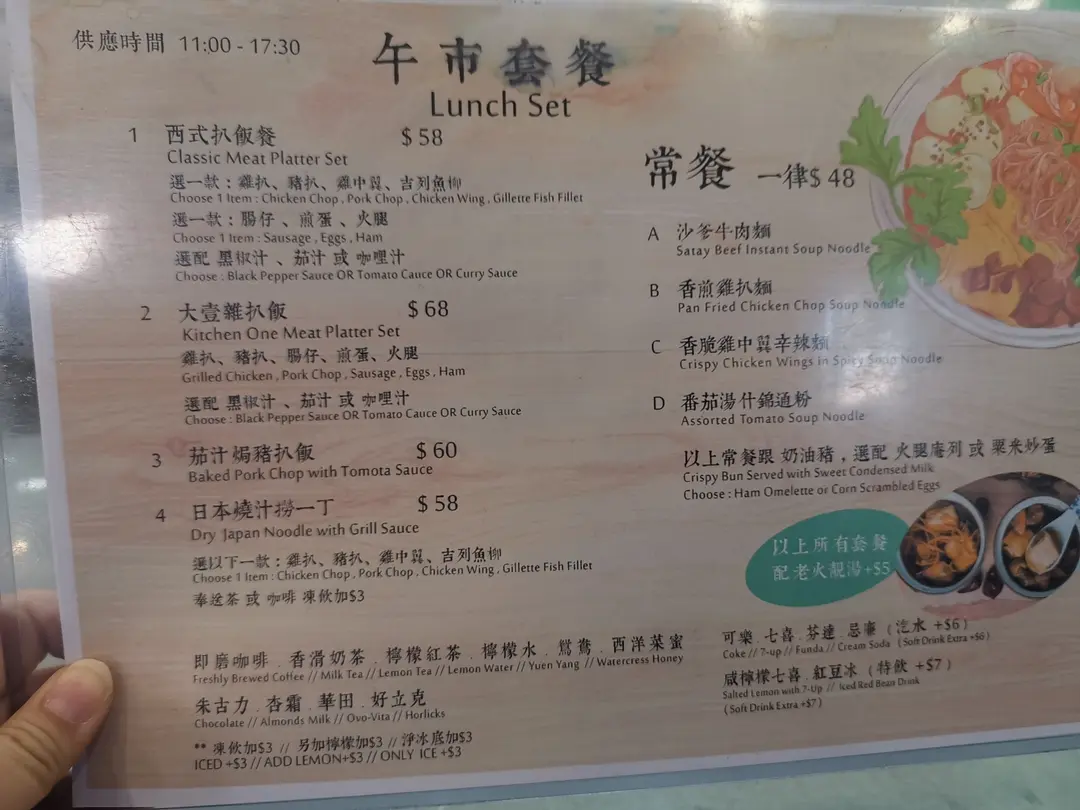 供應時間 11:00 - 17:30
午市套餐
Lunch Set
1 西式扒飯餐 $ 58
Classic Meat Platter Set
選一款：雞扒、豬扒、雞中翼、吉列魚柳
Choose 1 Item : Chicken Chop , Pork Chop , Chicken Wing , Gillette Fish Fillet
選一款：腸仔、煎蛋、火腿
Choose 1 Item : Sausage , Eggs , Ham
選配 黑椒汁、茄汁 或 咖哩汁
Choose : Black Pepper Sauce OR Tomato Cauce OR Curry Sauce
2 大壹雜扒飯 $ 68
Kitchen One Meat Platter Set
雞扒、豬扒、腸仔、煎蛋、火腿
Grilled Chicken , Pork Chop , Sausage , Eggs , Ham
選配 黑椒汁、茄汁 或 咖哩汁
Choose : Black Pepper Sauce OR Tomato Cauce OR Curry Sauce
3 茄汁焗豬扒飯 $ 60
Baked Pork Chop with Tomota Sauce
4 日本燒汁撈一丁 $ 58
Dry Japan Noodle with Grill Sauce
選以下一款：雞扒、豬扒、雞中翼、吉列魚柳
Choose 1 Item : Chicken Chop , Pork Chop , Chicken Wing , Gillette Fish Fillet
奉送茶 或 咖啡 凍飲加$3
常餐 一律$ 48
A 沙爹牛肉麵
Satay Beef Instant Soup Noodle
B 香煎雞扒麵
Pan Fried Chicken Chop Soup Noodle
C 香脆雞中翼辛辣麵
Crispy Chicken Wings in Spicy Soup Noodle
D 番茄湯什錦通粉
Assorted Tomato Soup Noodle
以上常餐跟 奶油豬，選配 火腿庵列 或 粟米炒蛋
Crispy Bun Served with Sweet Condensed Milk
Choose : Ham Omelette or Corn Scrambled Eggs
以上所有套餐
配老火靚湯+$5
即磨咖啡 . 香滑奶茶 . 檸檬紅茶 . 檸檬水 . 鴛鴦 . 西洋菜蜜
Freshly Brewed Coffee // Milk Tea // Lemon Tea // Lemon Water // Yuen Yang // Watercress Honey
朱古力 . 杏霜 . 華田 . 好立克
Chocolate // Almonds Milk // Ovo-Vita // Horlicks
** 凍飲加$3 // 另加檸檬加$3 // 淨冰底加$3
ICED +$3 // ADD LEMON+$3 // ONLY ICE +$3
可樂 . 七喜 . 芬達 . 忌廉 (汽水 +$6)
Coke // 7-up // Funda // Cream Soda (Soft Drink Extra +$6)
咸檸檬七喜 . 紅豆冰 (特飲 +$7)
Salted Lemon with 7-Up // Iced Red Bean Drink
(Soft Drink Extra +$7)